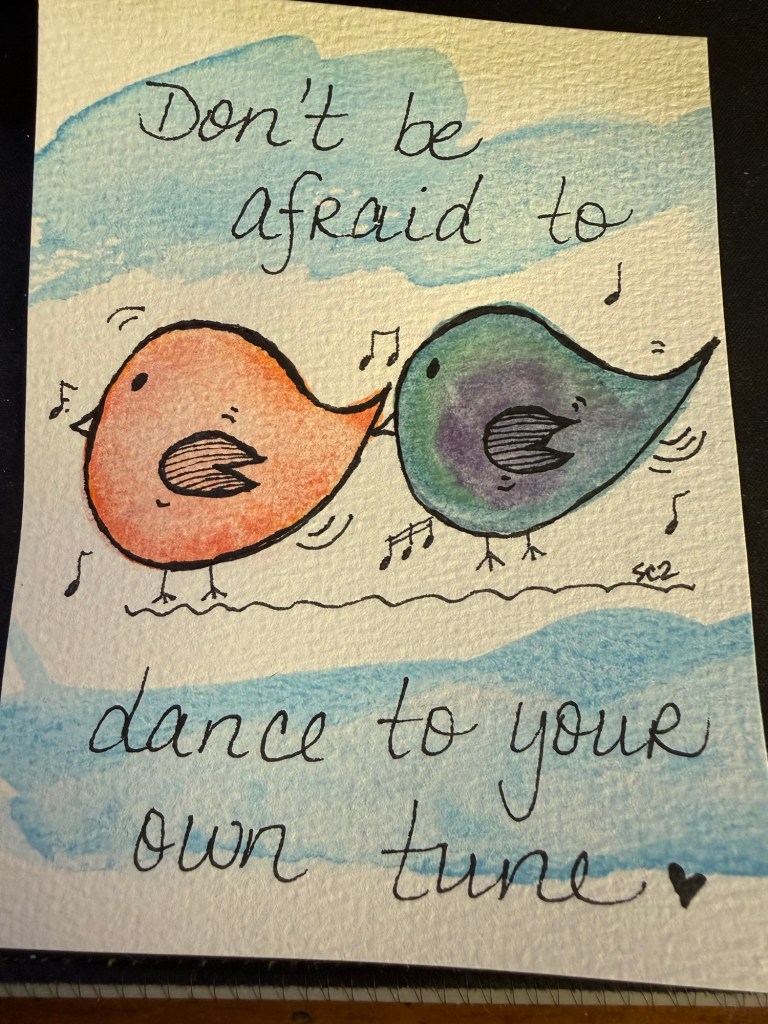 Don't be
afraid to
sc2
dance to your
own tune